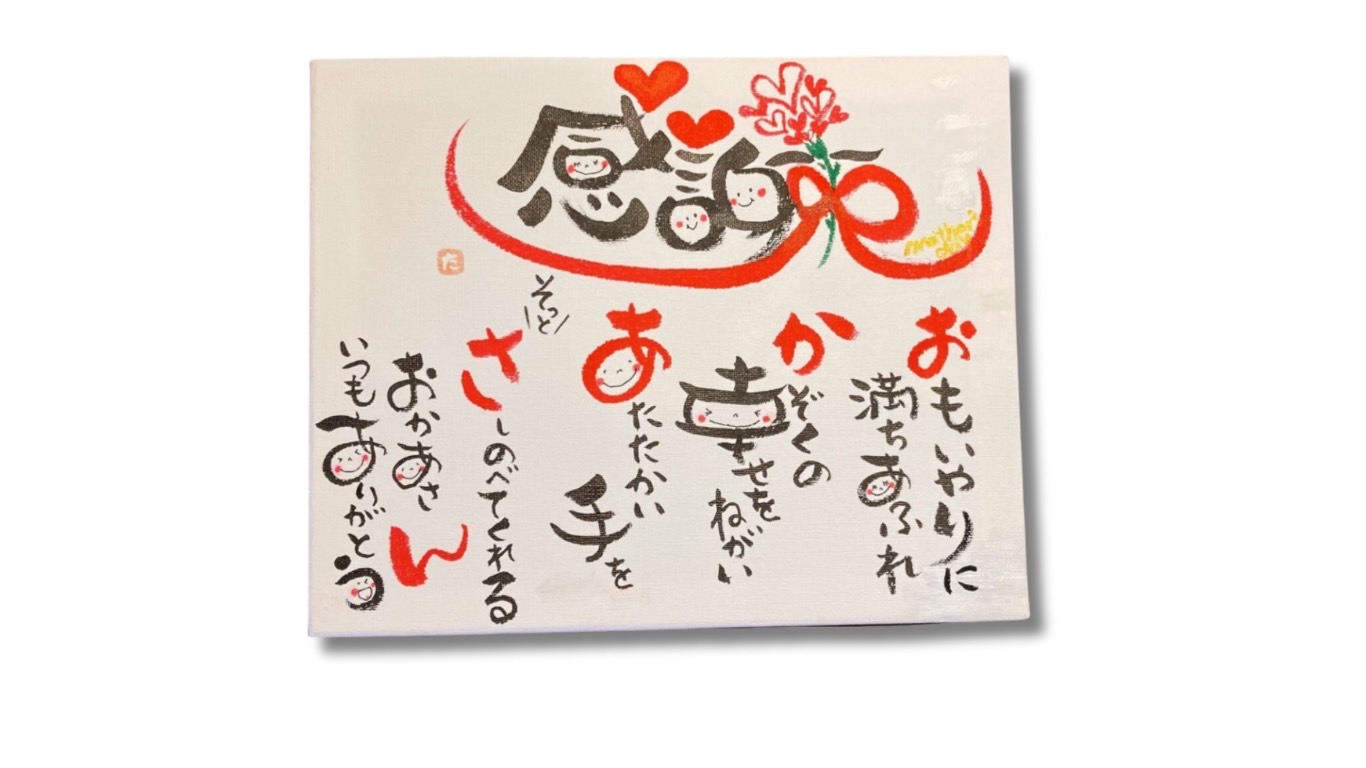 感謝
mother's day
おもいやりに
満ちあふれ
かぞくの
幸せを
ねがい
あたたかい
手を
そっと
さしのべてくれる
おかあさん
いつもありがとう
た